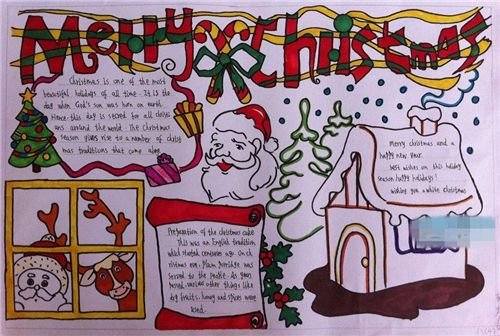 Merry Christmas
Christmas is one of the most
beautiful holidays of all time. It is the
day when God's sun was born on earth.
Hence, this day is sacred for all
around the world. The Christmas
season gives rise to a number of christ
mas traditions that come along
Merry christmas and a
happy new year.
best wishes on this holiday
season. happy holidays!
wishing you a white christmas
Preparation of the christmas cake
This was an English tradition,
which started centuries ago. On ch
ristmas eve, Plum Porridge was
served to the people. As years
passed, various other things like
dry fruits, honey and spices were